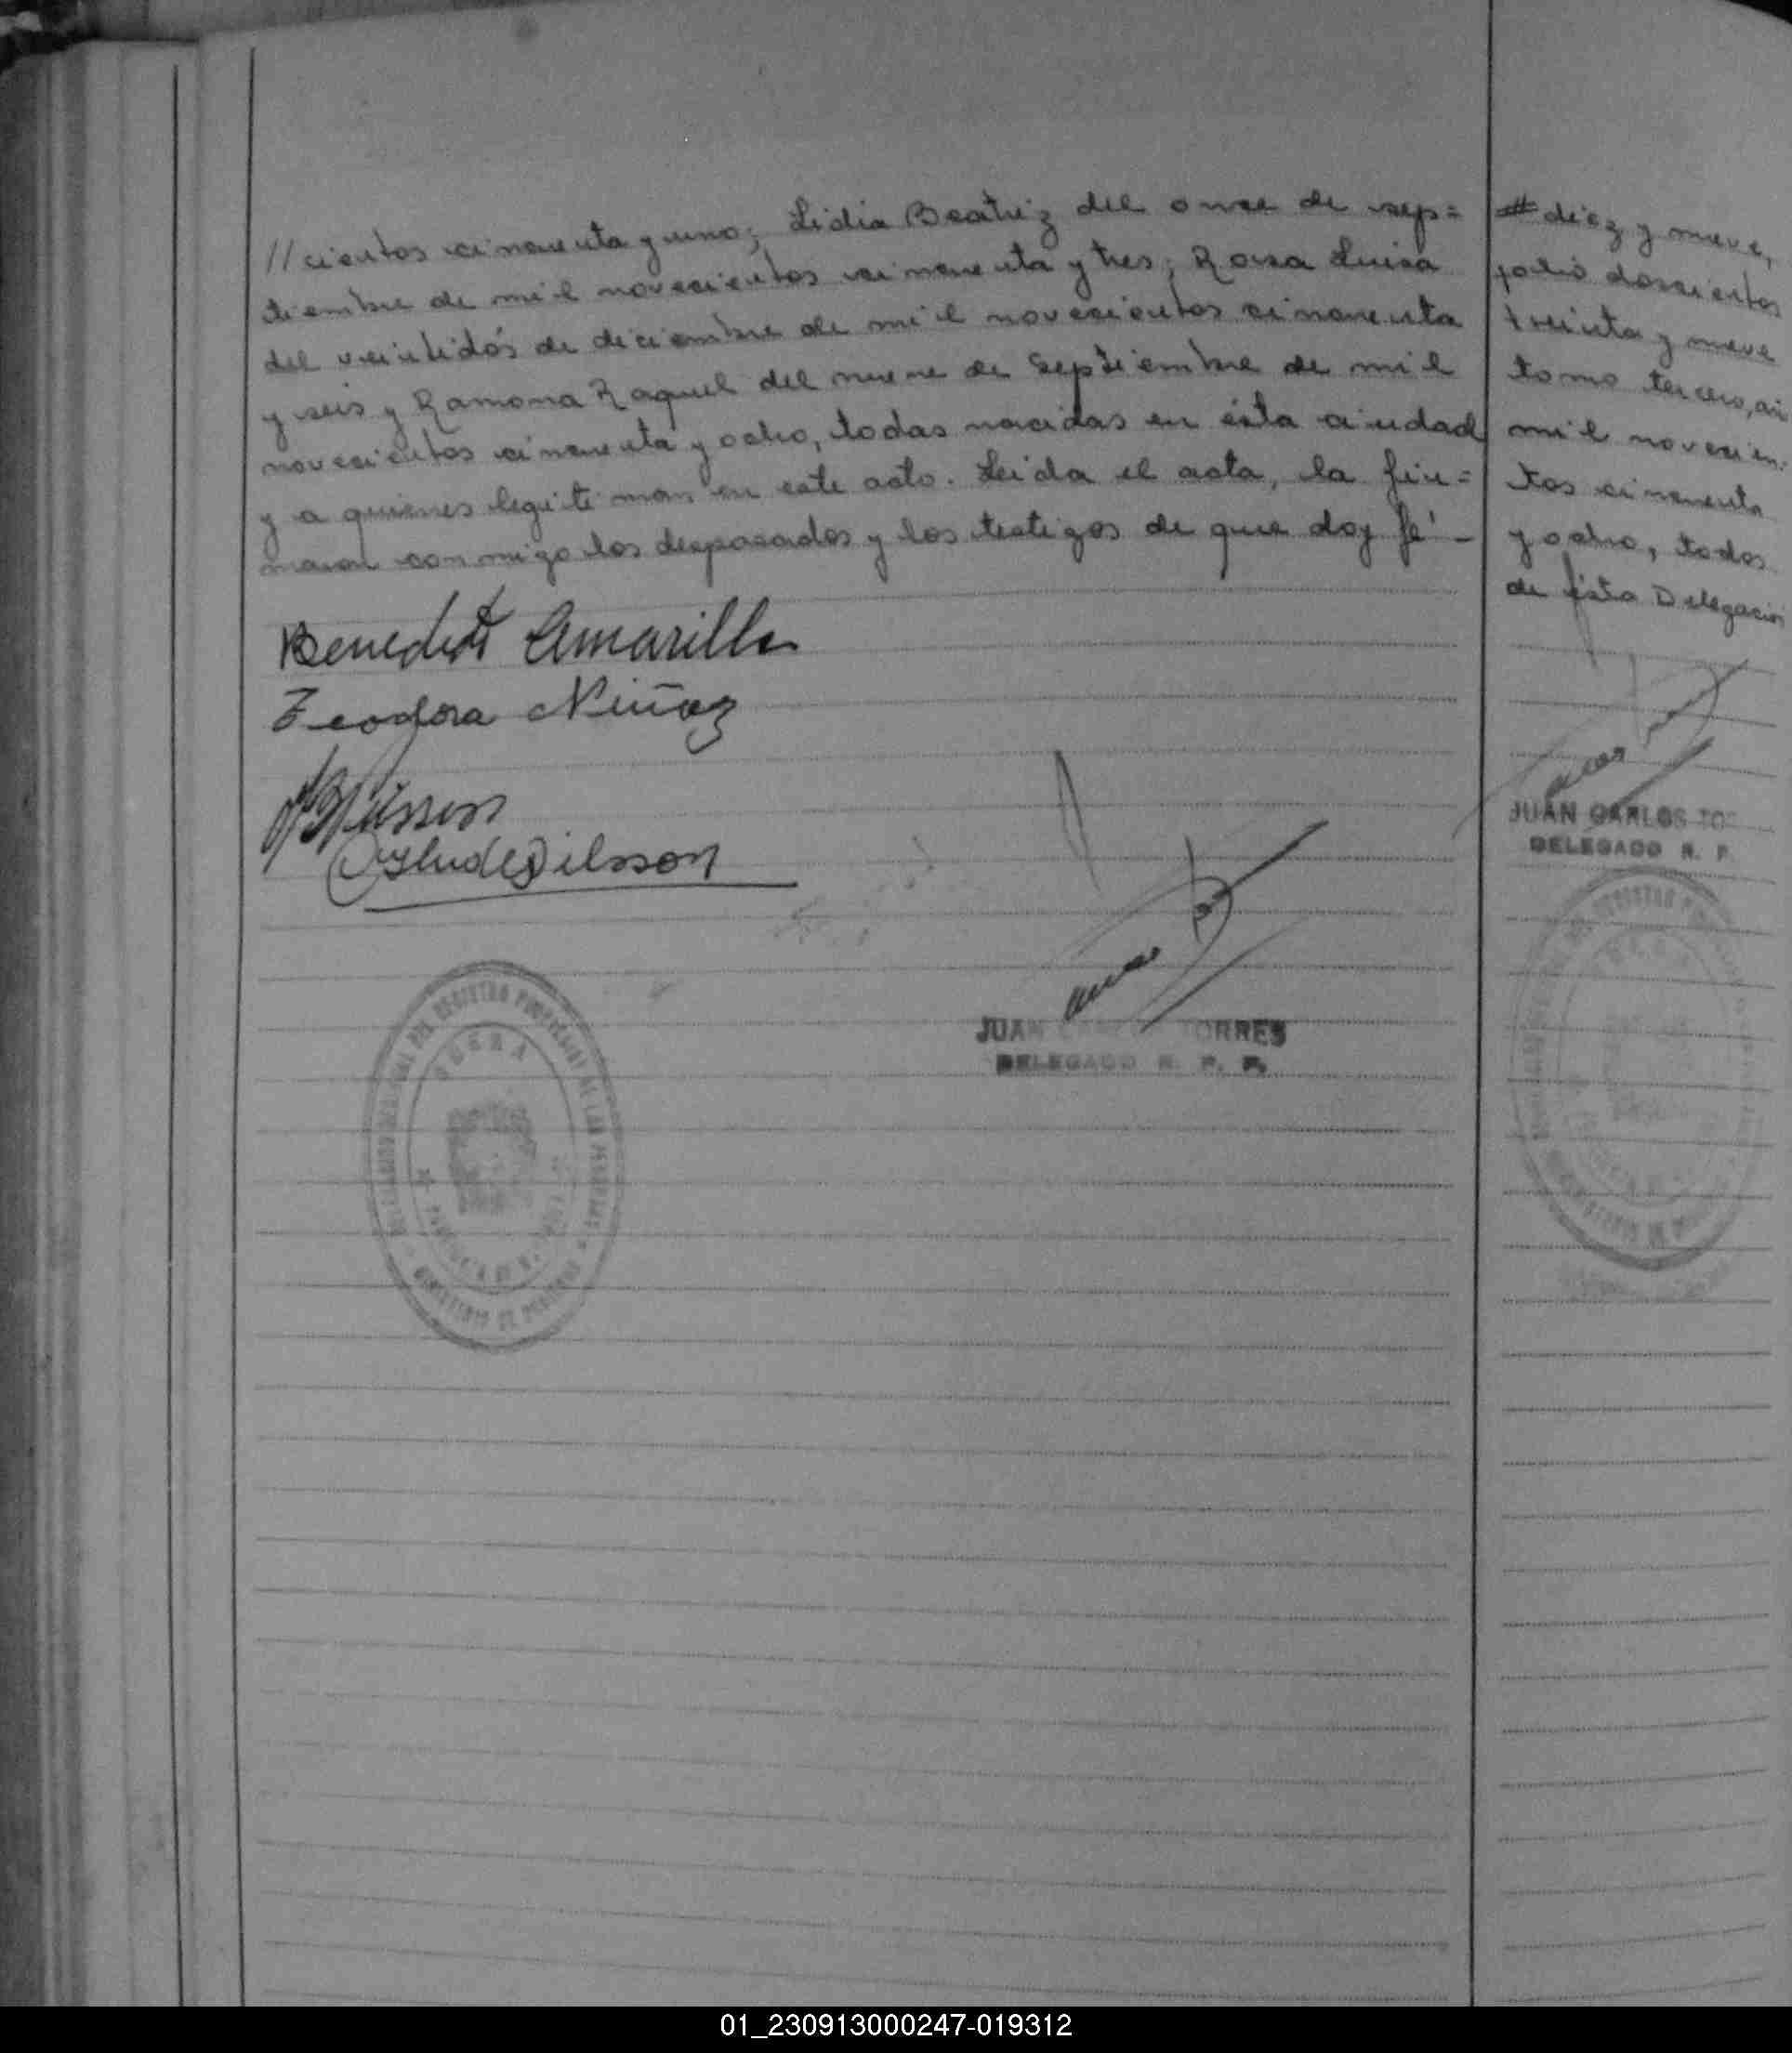 //cientos cincuenta y uno; Lidia Beatriz del once de sep=
tiembre de mil novecientos cincuenta y tres; Rosa Luisa
del veintidós de diciembre de mil novecientos cincuenta
y seis y Ramona Raquel del nueve de Septiembre de mil
novecientos cincuenta y ocho, todas nacidas en ésta ciudad
y a quienes legitiman en este acto. Leida el acta, la fir=
maron conmigo los desposados y los testigos de que doy fé -
Benedicto Amarilla
Teodora
JUAN TORRES
DELEGADO R. P. P.
DEL REGISTRO PROVINCIAL DE LAS PERSONAS
# diez y nueve,
folio doscientos
treinta y nueve
tomo tercero,
mil novecien-
tos cincuenta
y ocho, todos
de ésta Delegación
JUAN CARLOS
DELEGADO R. P.
01_230913000247-019312